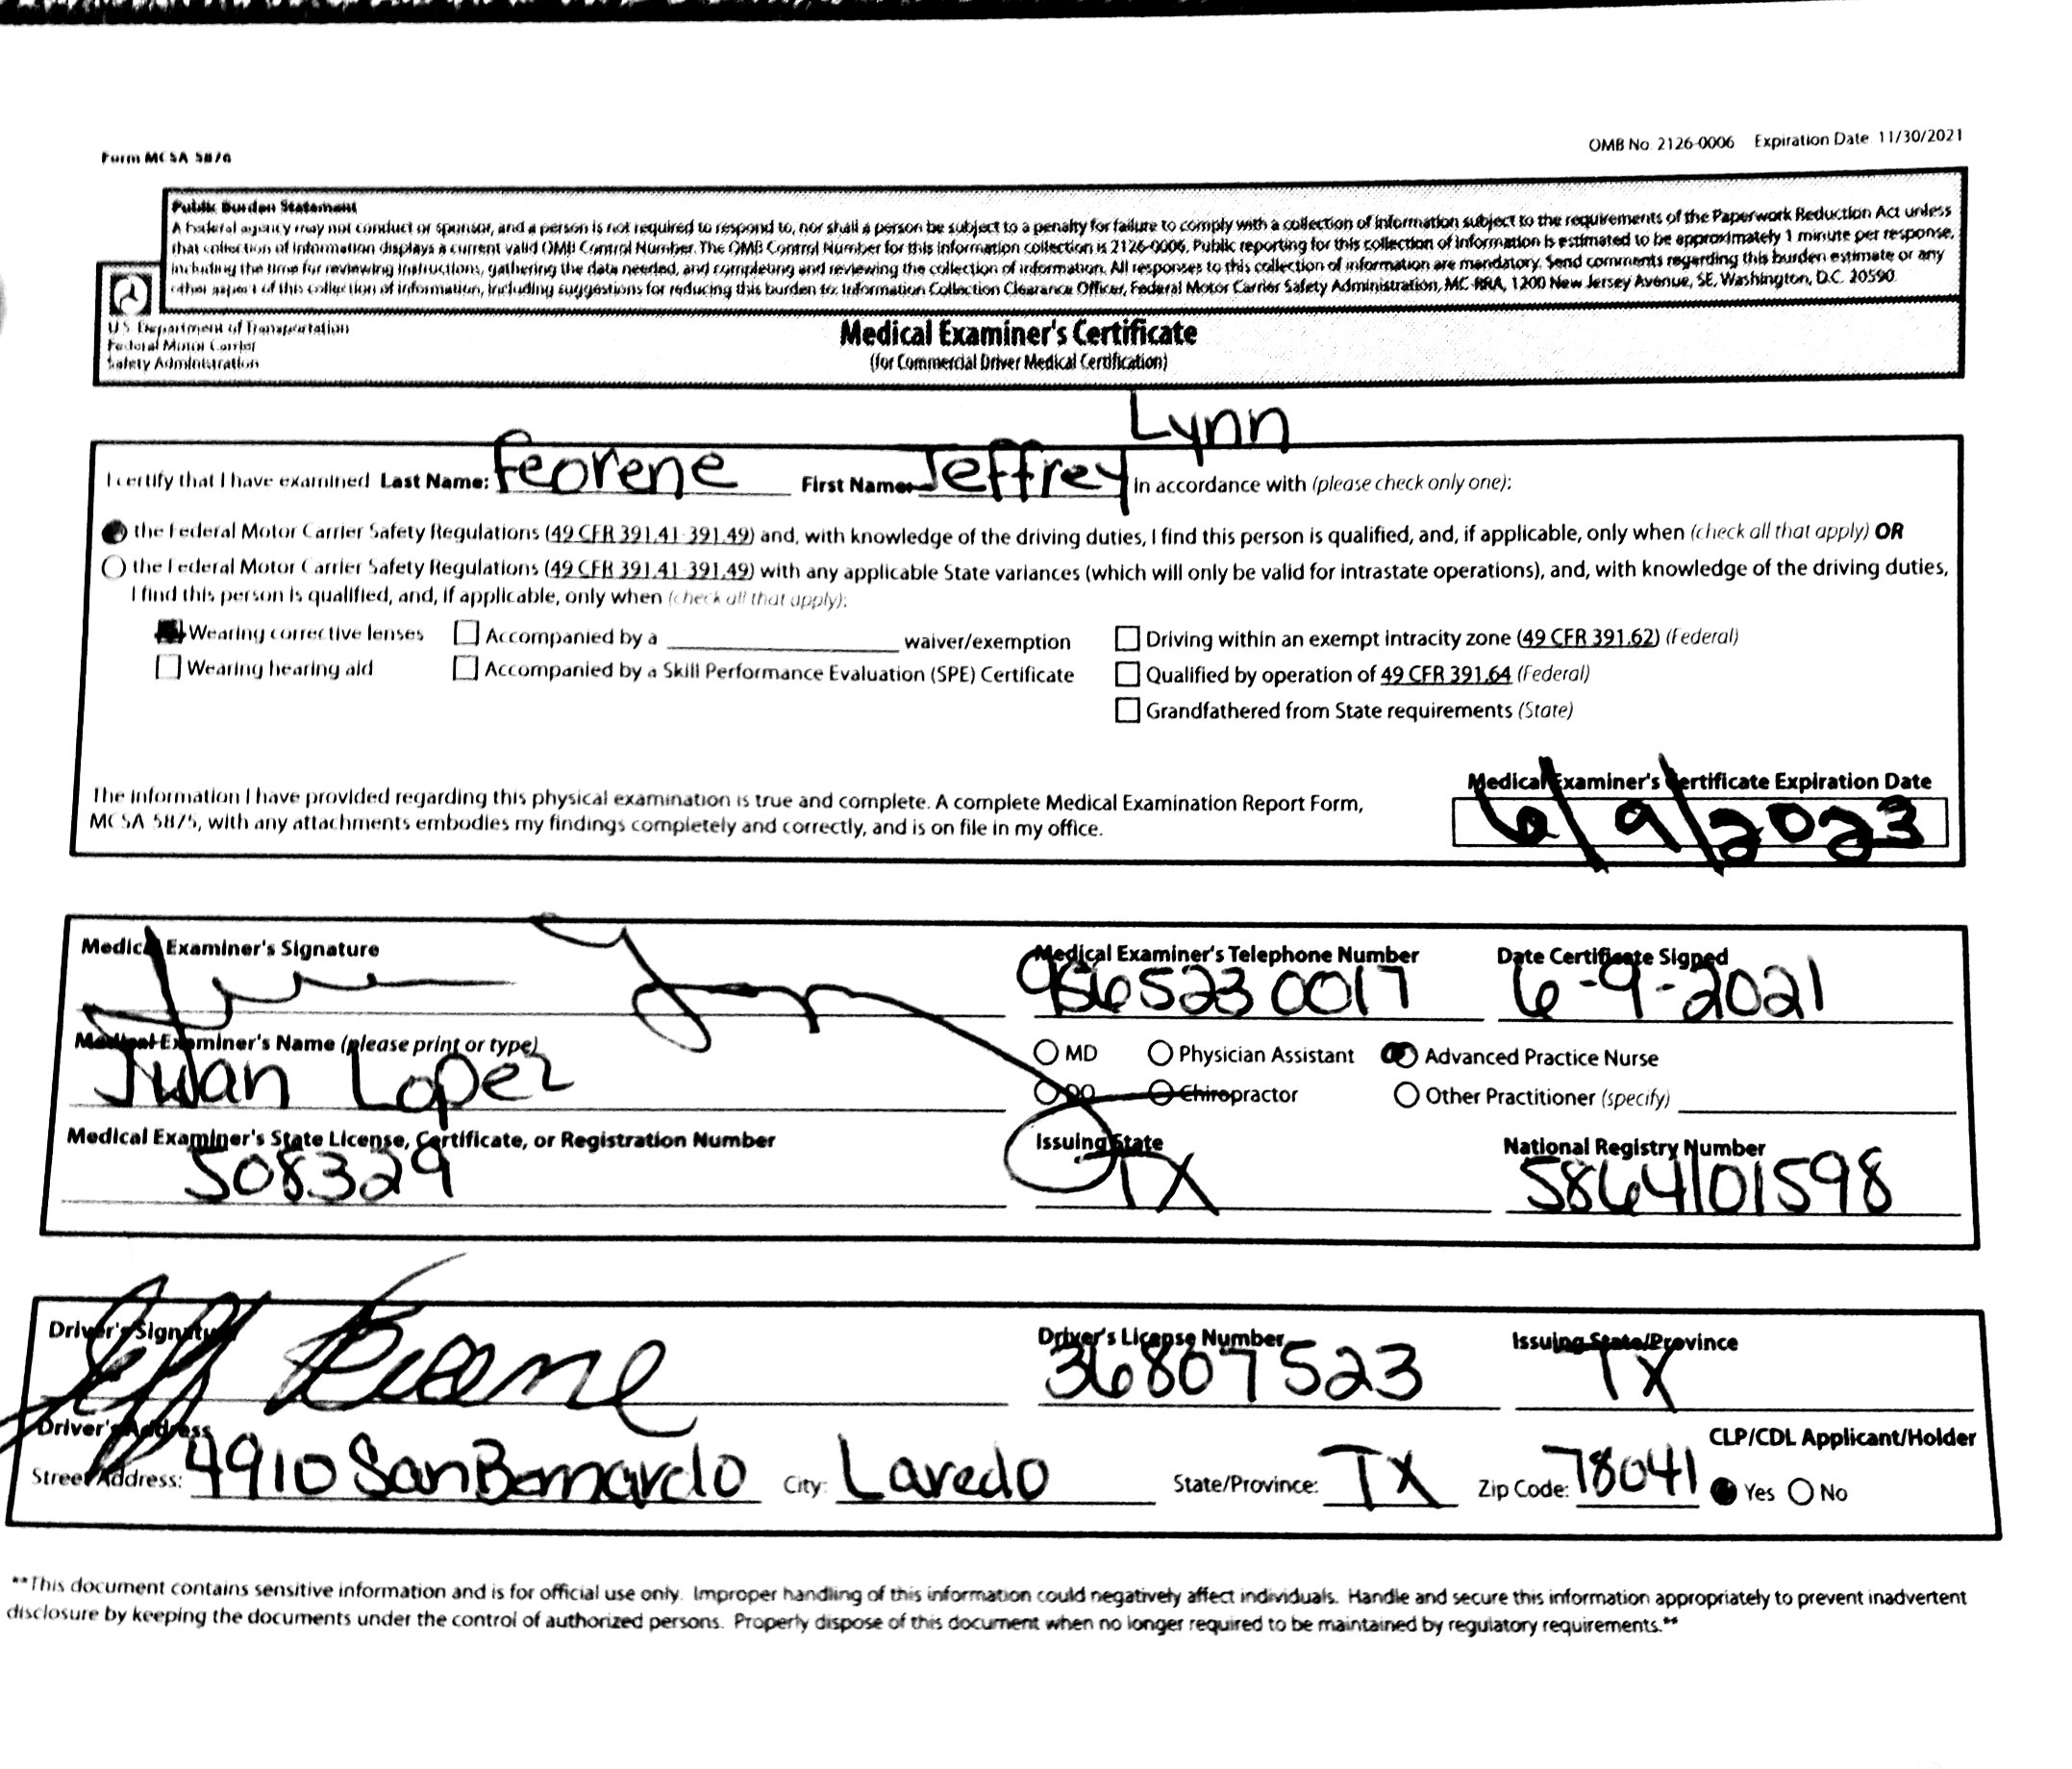 Form MCSA 5876
OMB No. 2126-0006 Expiration Date 11/30/2021
Public Burden Statement
A Federal agency may not conduct or sponsor, and a person is not required to respond to, nor shall a person be subject to a penalty for failure to comply with a collection of information subject to the requirements of the Paperwork Reduction Act unless
that collection of information displays a current valid OMB Control Number. The OMB Control Number for this information collection is 2126-0006. Public reporting for this collection of information is estimated to be approximately 1 minute per response,
including the time for reviewing instructions, gathering the data needed, and completing and reviewing the collection of information. All responses to this collection of information are mandatory. Send comments regarding this burden estimate or any
other aspect of this collection of information, including suggestions for reducing this burden to: Information Collection Clearance Officer, Federal Motor Carrier Safety Administration, MC-RRA, 1200 New Jersey Avenue, SE, Washington, D.C. 20590.
U.S. Department of Transportation
Federal Motor Carrier
Safety Administration
Medical Examiner's Certificate
(for Commercial Driver Medical Certification)
Lynn
I certify that I have examined Last Name: Feorene First Name: Jeffrey in accordance with (please check only one):
the Federal Motor Carrier Safety Regulations (49 CFR 391.41-391.49) and, with knowledge of the driving duties, I find this person is qualified, and, if applicable, only when (check all that apply) OR
the Federal Motor Carrier Safety Regulations (49 CFR 391.41-391.49) with any applicable State variances (which will only be valid for intrastate operations), and, with knowledge of the driving duties,
I find this person is qualified, and, if applicable, only when (check all that apply):
Wearing corrective lenses Accompanied by a waiver/exemption Driving within an exempt intracity zone (49 CFR 391.62) (Federal)
Wearing hearing aid Accompanied by a Skill Performance Evaluation (SPE) Certificate Qualified by operation of 49 CFR 391.64 (Federal)
Grandfathered from State requirements (State)
Medical Examiner's Certificate Expiration Date
The information I have provided regarding this physical examination is true and complete. A complete Medical Examination Report Form,
MCSA 5875, with any attachments embodies my findings completely and correctly, and is on file in my office.
6/9/2023
Medical Examiner's Signature Medical Examiner's Telephone Number Date Certificate Signed
956 523 0017 6-9-2021
Medical Examiner's Name (please print or type) MD Physician Assistant Advanced Practice Nurse
Juan Lopez DO Chiropractor Other Practitioner (specify)
Medical Examiner's State License, Certificate, or Registration Number Issuing State National Registry Number
508329 TX 5864101598
Driver's Signature Driver's License Number Issuing State/Province
Jeff Feorene 36807523 TX
Driver's Address CLP/CDL Applicant/Holder
Street Address: 4910 San Bernardo City: Laredo State/Province: TX Zip Code: 78041 Yes No
**This document contains sensitive information and is for official use only. Improper handling of this information could negatively affect individuals. Handle and secure this information appropriately to prevent inadvertent
disclosure by keeping the documents under the control of authorized persons. Properly dispose of this document when no longer required to be maintained by regulatory requirements.**